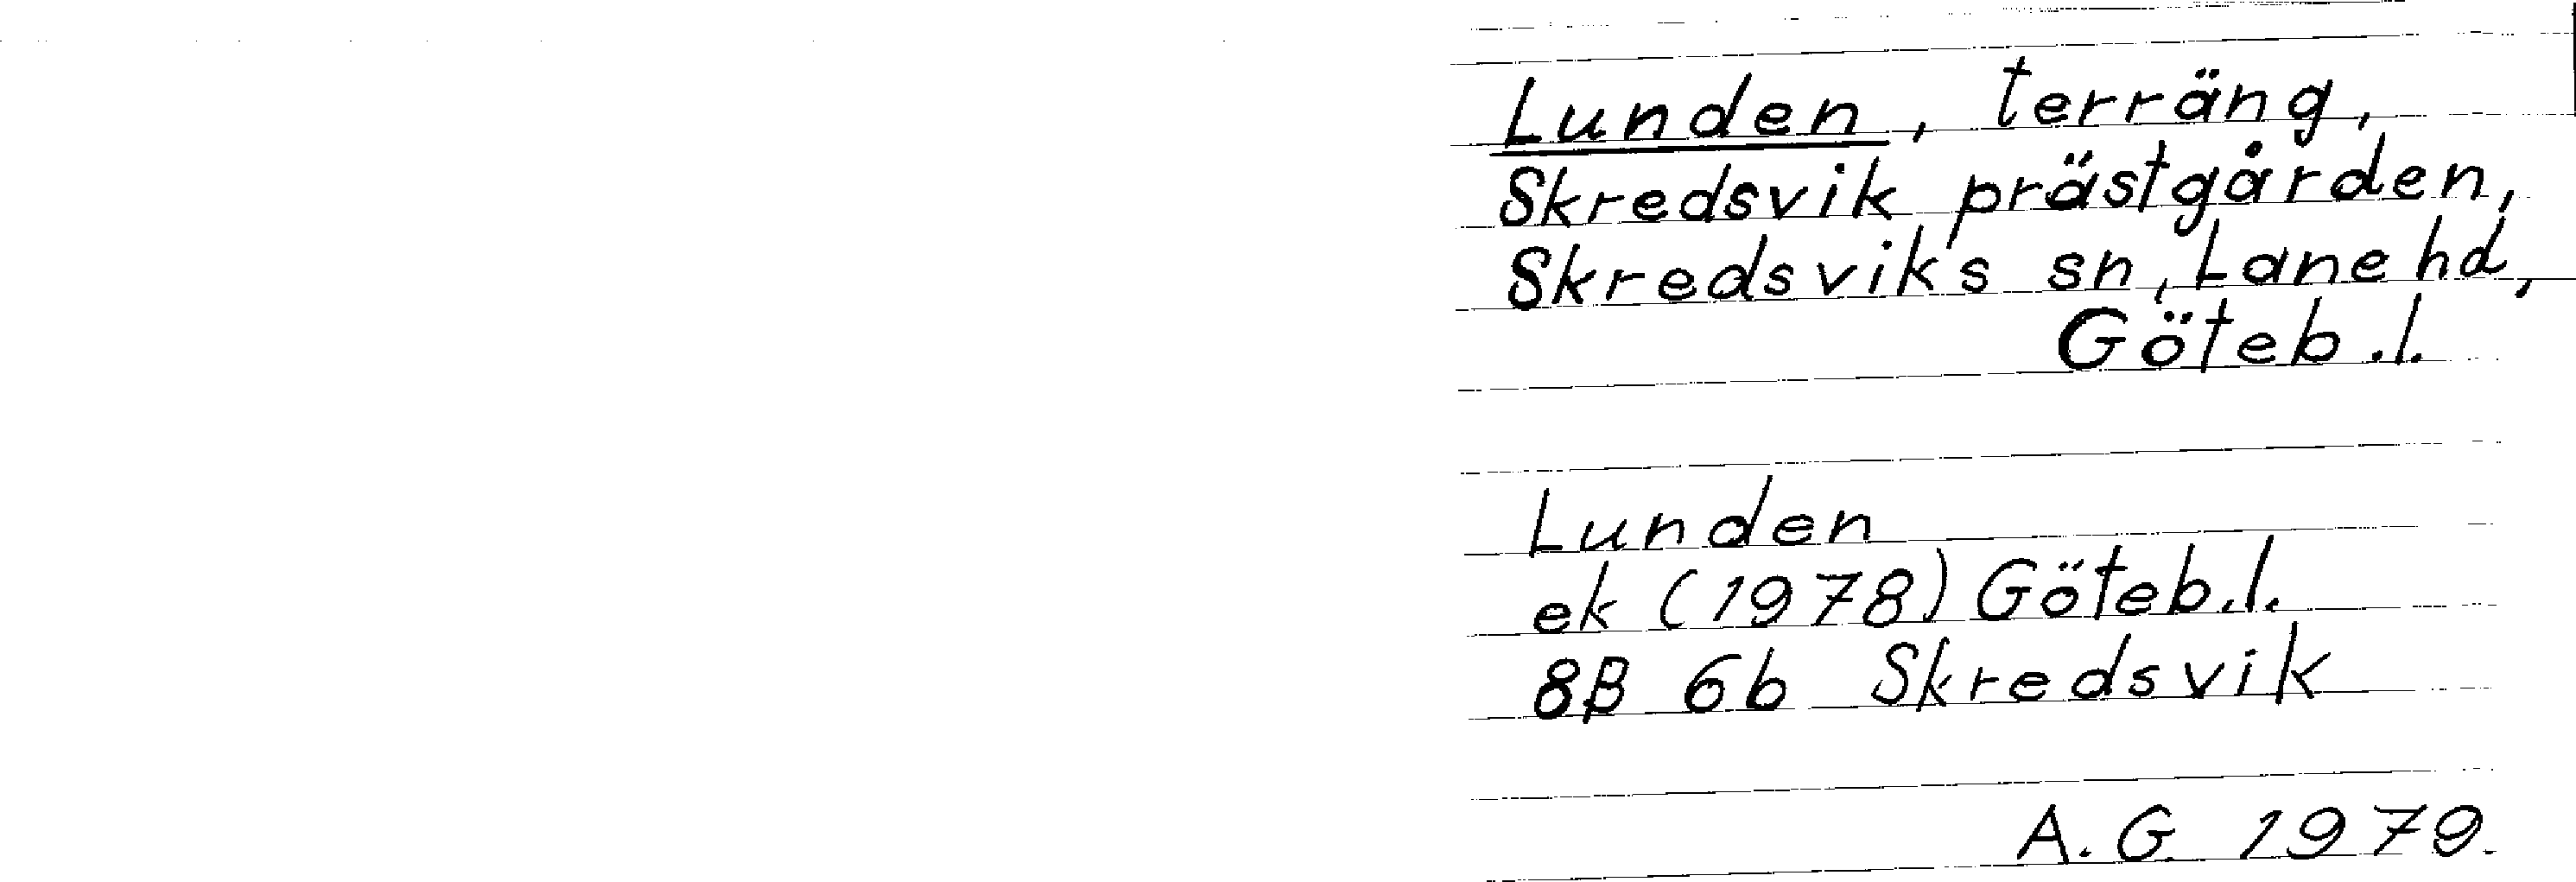 Lunden, terräng,
Skredsvik prästgården,
Skredsviks sn, Lane hd,
Göteb.l.
Lunden
ek (1978) Göteb.l.
8B 6b Skredsvik
A.G. 1979.